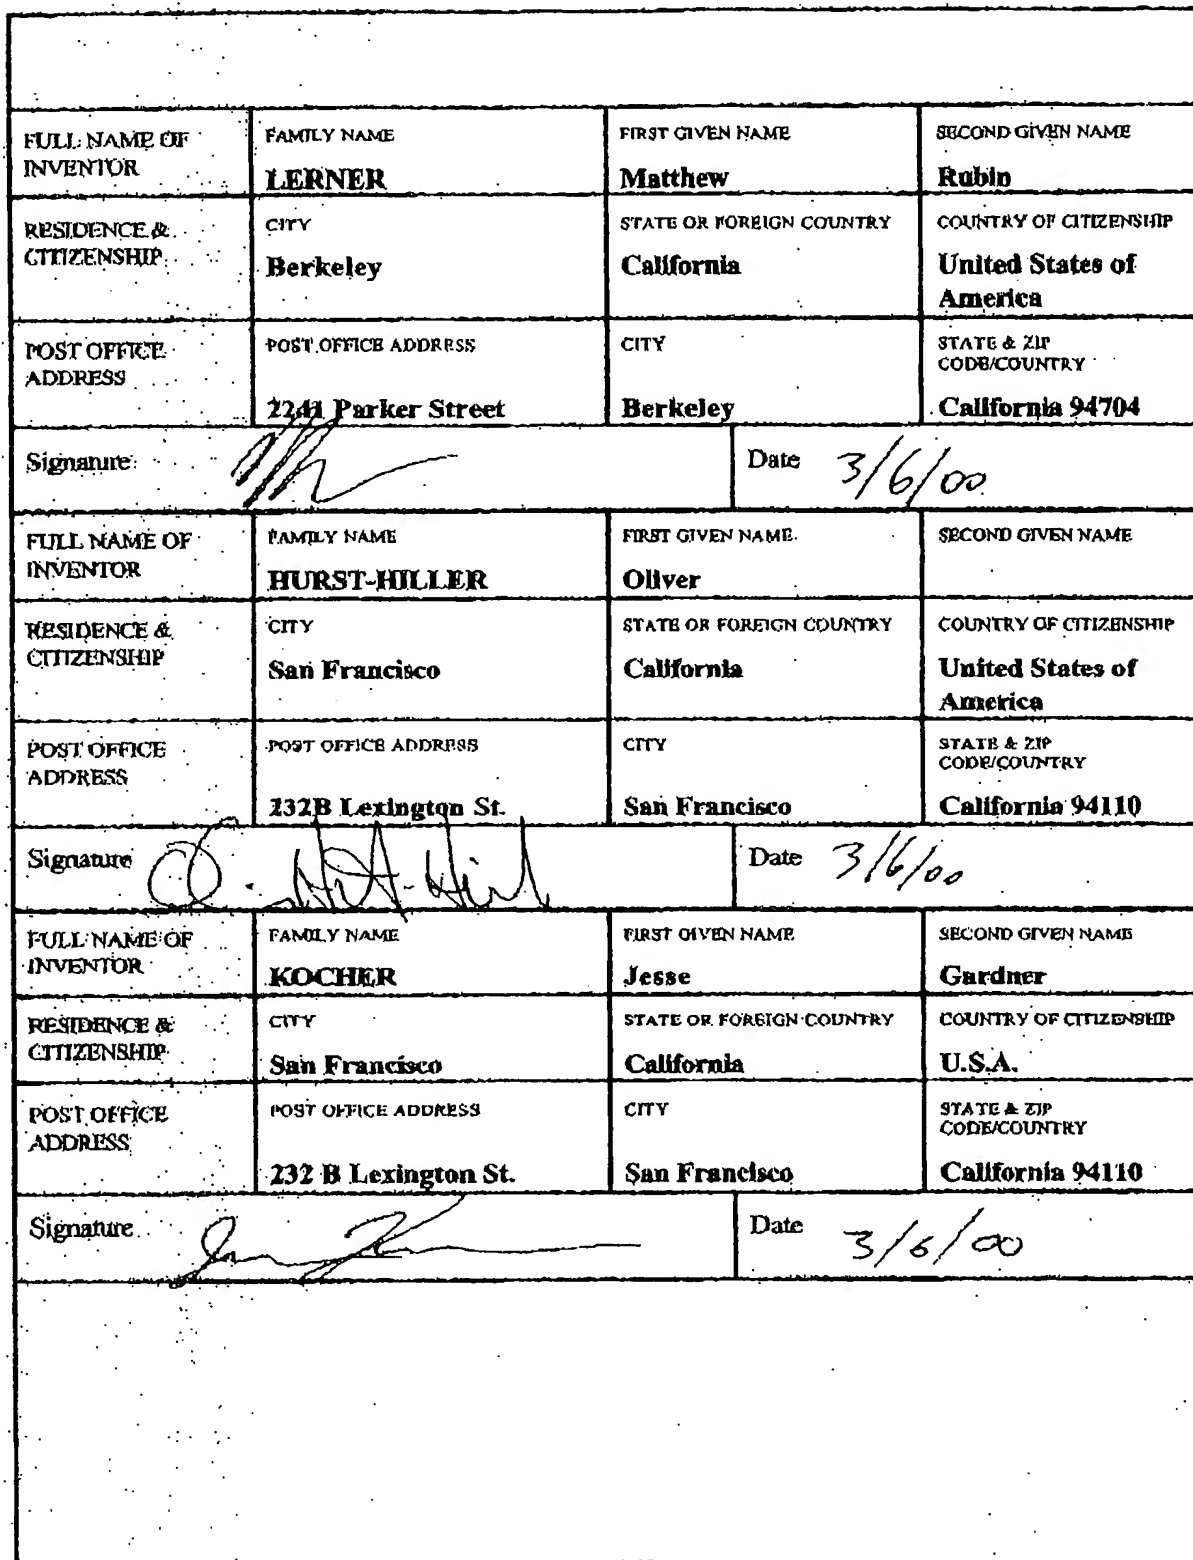 FULL NAME OF INVENTOR
FAMILY NAME
LERNER
FIRST GIVEN NAME
Matthew
SECOND GIVEN NAME
Rubin
RESIDENCE & CITIZENSHIP
CITY
Berkeley
STATE OR FOREIGN COUNTRY
California
COUNTRY OF CITIZENSHIP
United States of
America
POST OFFICE
ADDRESS
POST OFFICE ADDRESS
2241 Parker Street
CITY
Berkeley
STATE & ZIP
CODE/COUNTRY
California 94704
Signature
Date 3/6/00
FULL NAME OF
INVENTOR
FAMILY NAME
HURST-HILLER
FIRST GIVEN NAME
Oliver
SECOND GIVEN NAME
RESIDENCE &
CITIZENSHIP
CITY
San Francisco
STATE OR FOREIGN COUNTRY
California
COUNTRY OF CITIZENSHIP
United States of
America
POST OFFICE
ADDRESS
POST OFFICE ADDRESS
232B Lexington St.
CITY
San Francisco
STATE & ZIP
CODE/COUNTRY
California 94110
Signature
Date 3/6/00
FULL NAME OF
INVENTOR
FAMILY NAME
KOCHER
FIRST GIVEN NAME
Jesse
SECOND GIVEN NAME
Gardner
RESIDENCE &
CITIZENSHIP
CITY
San Francisco
STATE OR FOREIGN COUNTRY
California
COUNTRY OF CITIZENSHIP
U.S.A.
POST OFFICE
ADDRESS
POST OFFICE ADDRESS
232 B Lexington St.
CITY
San Francisco
STATE & ZIP
CODE/COUNTRY
California 94110
Signature
Date 3/6/00